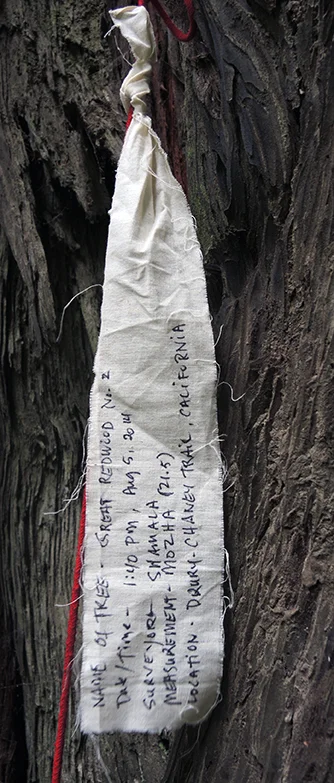 NAME OF TREE - GREAT REDWOOD No. 2
Date/Time - 1:40 PM, Aug 5, 2014
SURVEYOR - SHAMALA
MEASUREMENT - MOZHA (21.5)
LOCATION - DRURY-CHANEY TRAIL, CALIFORNIA